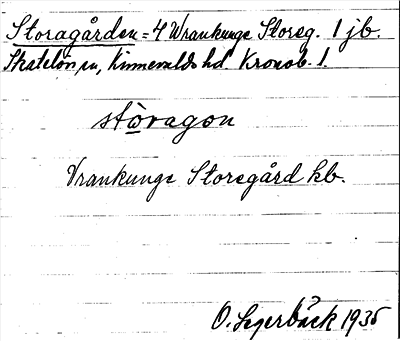 Storagården = 4 Wrankunge Storeg. 1 jb.
Skatelöv sn, Kinnevalds hd. Kronob. l.
stòragon
Vrankunge Storegård kb.
O. Segerbäck 1935